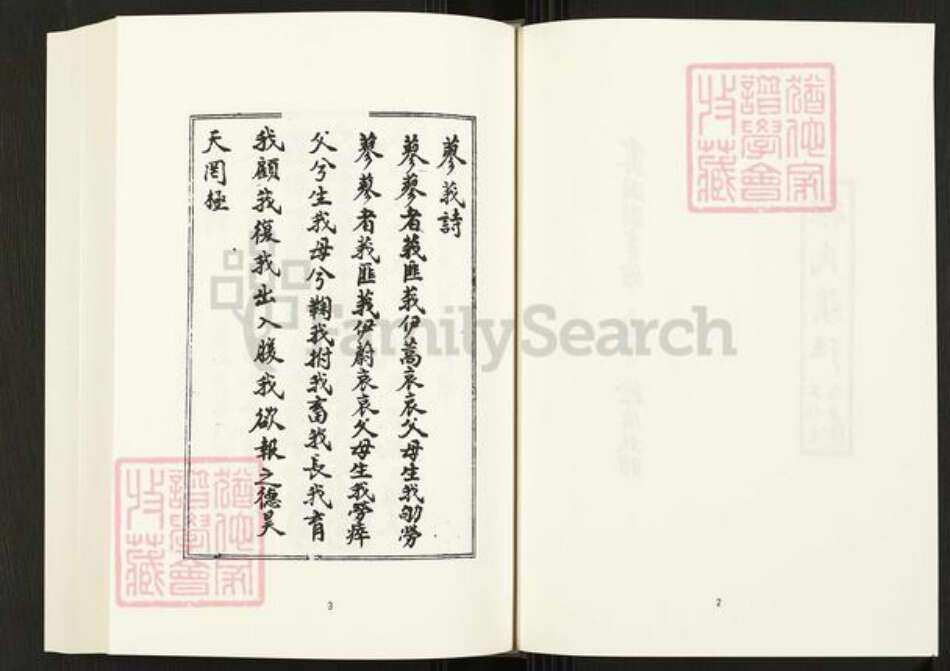 蓼莪詩
蓼蓼者莪匪莪伊蒿哀哀父母生我劬勞
蓼蓼者莪匪莪伊蔚哀哀父母生我勞瘁
父兮生我母兮鞠我拊我畜我長我育
我顧我復我出入腹我欲報之德昊
天罔極
3
2
FamilySearch
譜學會
收藏
譜學會
收藏